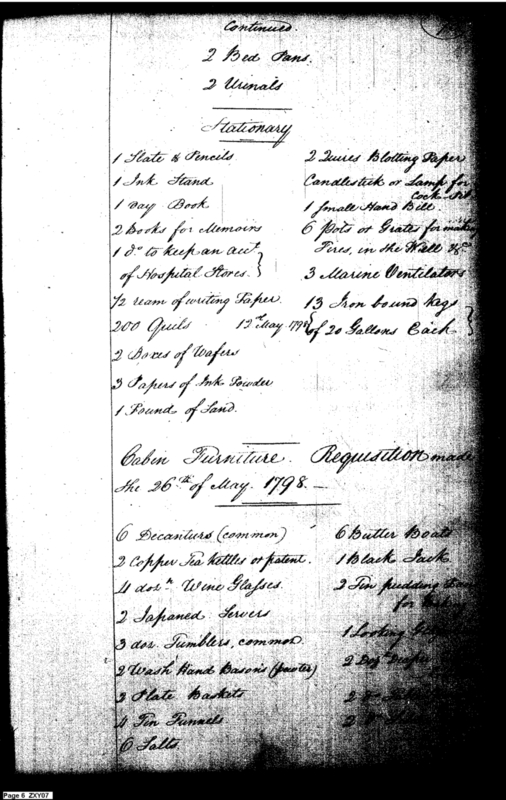 Continued.
2 Bed Pans.
2 Urinals
Stationary
1 Slate & Pencils
1 Ink Stand
1 Day Book
2 Books for Memoirs
1 do. to keep an acct.
of Hospital Stores.
1/2 ream of writing Paper.
200 Quils
12th May 1798
2 Boxes of Wafers
3 Papers of Ink Powder
1 Pound of Sand.
2 Quires Blotting Paper
Candlestick or Lamp for
Cock
1 Small Hand Bill
6 Pots or Grates for making
Fires, in the Well &c.
3 Marine Ventilators
13 Iron bound kegs
of 20 Gallons Each
Cabin Furniture. Requisition made
the 26th of May 1798 —
6 Decanturs (common)
2 Copper Tea Kettles or patent.
4 dozn. Wine Glasses.
2 Japaned Servers
3 doz. Tumblers, common
2 Wash Hand Basons (pewter)
2 Plate Baskets
4 Tin Funnels
6 Salts
6 Butter Boats
1 Black Jack
2 Tin pudding
for
1 Looking
2 Doz
2 do
2 do
Page 6 ZXY07